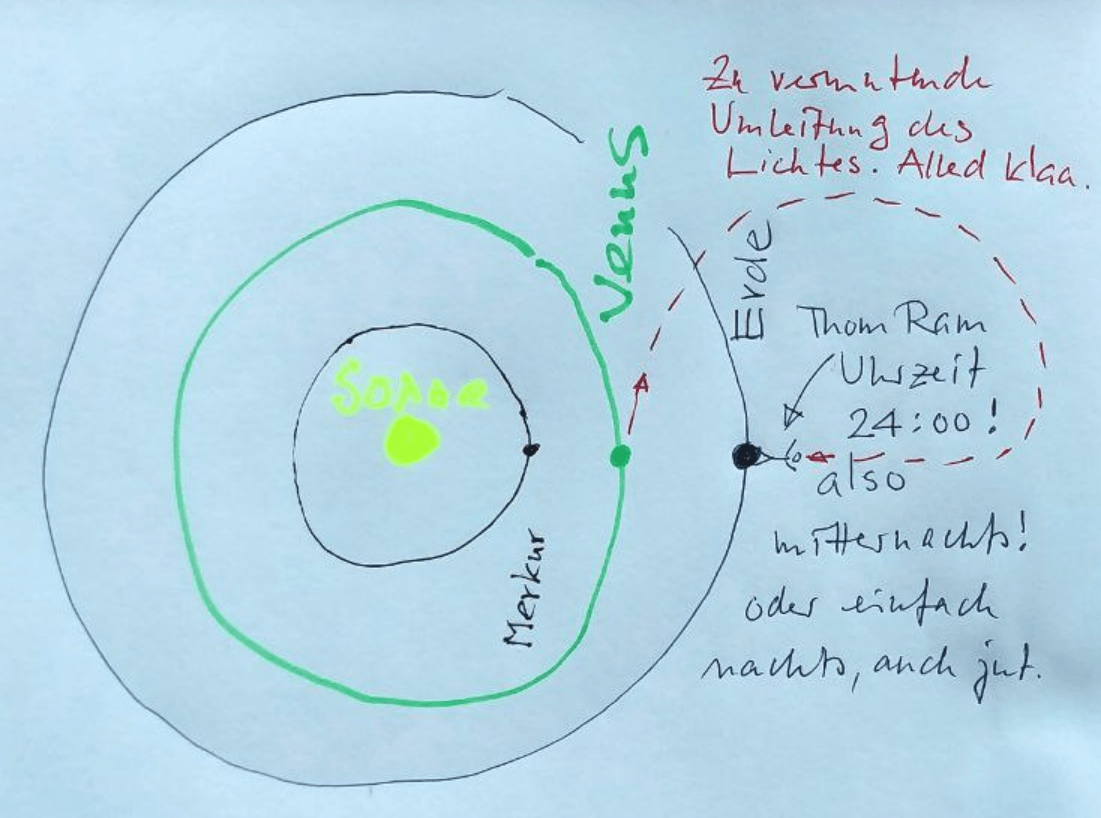 Zu vermutende
Umleitung des
Lichtes. Alled klaa.
Venus
Erde
Thom Ram
Uhrzeit
24:00!
also
mitternachts!
oder einfach
nachts, auch jut.
Sonne
Merkur